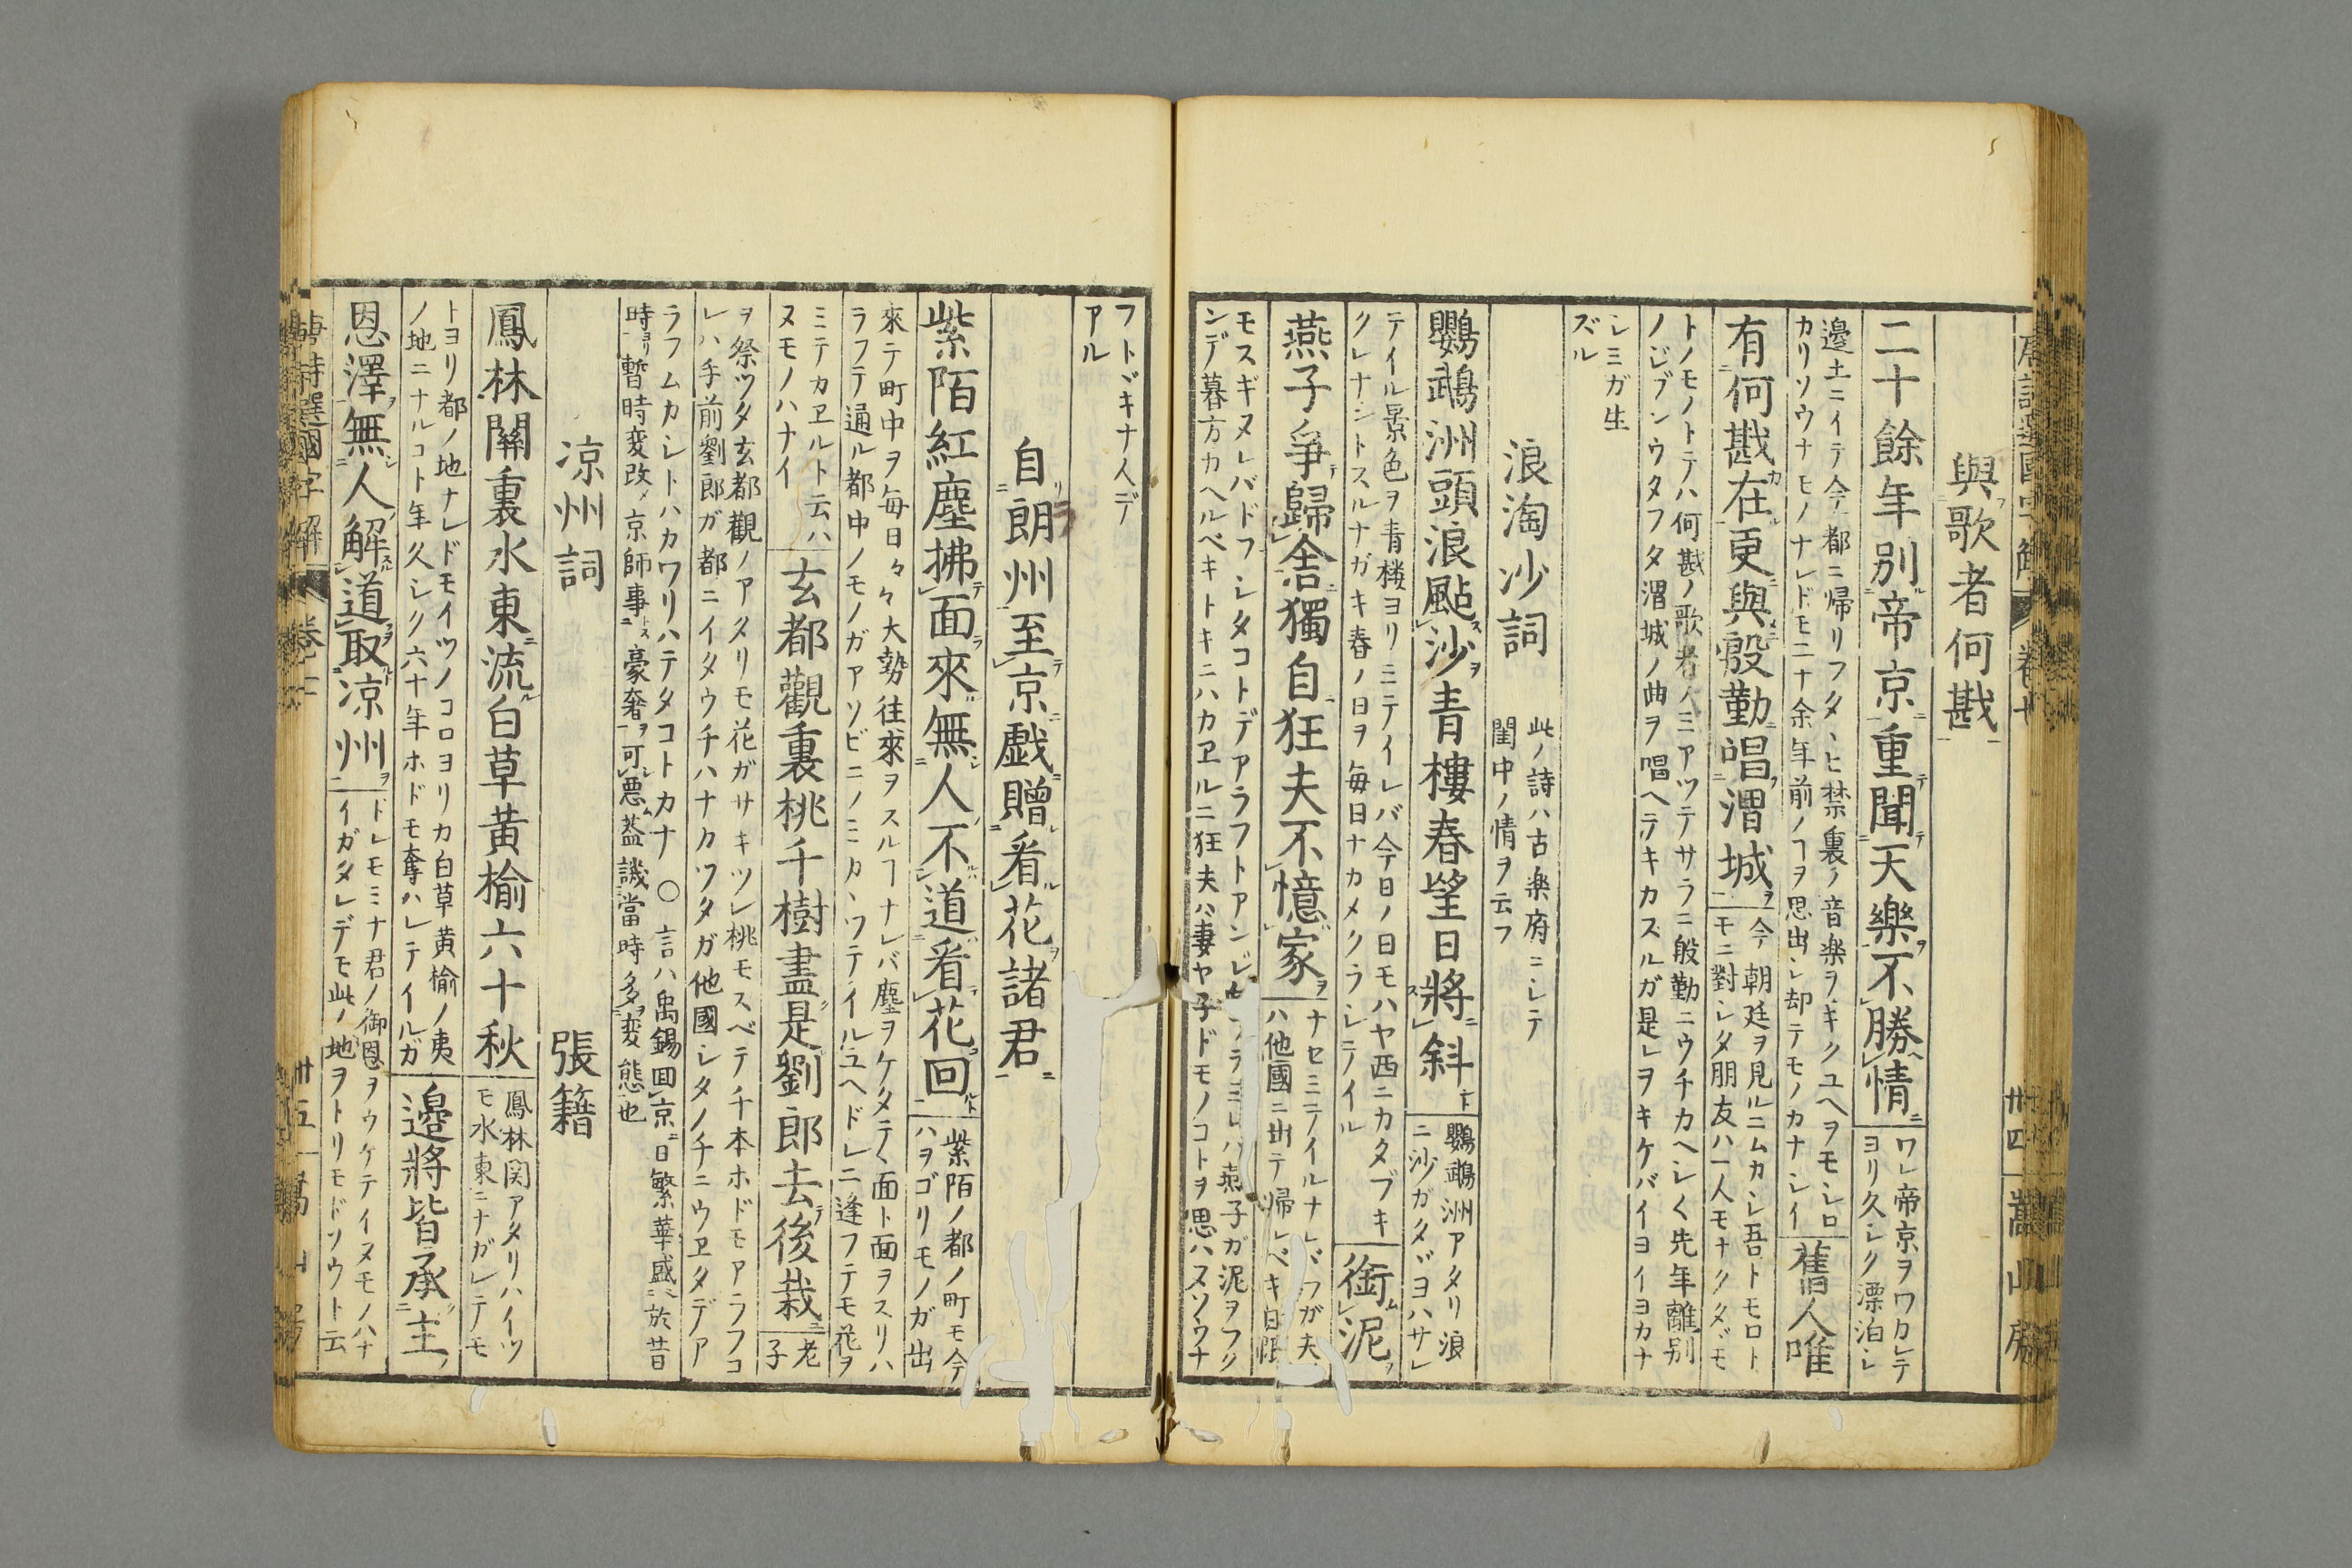 與歌者何戡
二十餘年別帝京重聞天樂不勝情
ワレ帝京ヲワカレテ
ヨリ久シク漂泊シ
邊土ニイテ今都ニ帰リフタヽヒ禁裏ノ音楽ヲキクユヘヲモシロ
カリソウナモノナレドモ二十余年前ノヿヲ思出シ却テモノカナシイ
舊人唯
有何戡在更與殷勤唱渭城
今朝廷ヲ見ルニムカシ吾トモロト
モニ對シタ朋友ハ一人モナクタヾモ
トノモノトテハ何戡ノ歌者ノミアツテサラニ殷勤ニウチカヘシ〱先年離別
ノジブンウタフタ渭城ノ曲ヲ唱ヘテキカスルガ是レヲキケバイヨイヨカナ
シミガ生
ズル
浪淘沙詞
此ノ詩ハ古楽府ニシテ
閨中ノ情ヲ云フ
鸚鵡洲頭浪颭沙青樓春望日將斜
鸚鵡洲アタリ浪
ニ沙ガタヾヨハサレ
テイル景色ヲ青楼ヨリミテイレバ今日ノ日モハヤ西ニカタブキ
クレナントスルナガキ春ノ日ヲ毎日ナカメクラシテイル
銜泥
燕子爭歸舍獨自狂夫不憶家
ナセミテイルナレバワガ夫
ハ他國ニ出テ帰ルベキ日限
モスギヌレバドフシタコトデアラフトアンジ
ンデ暮方カヘルベキトキニハカヱルニ狂夫ハ妻ヤ子ドモノコトヲ思ハヌソウナ
フトヾキナ人デ
アル
自朗州至京戯贈看花諸君
紫陌紅塵拂面來無人不道看花回
紫陌ノ都ノ町モ今
ハヲゴリモノガ出
來テ町中ヲ毎日々々大勢往來ヲスルヿナレバ塵ヲケタテ〱面ト面ヲスリハ
ラフテ通ル都中ノモノガアソビニノミカヽワテイルユヘドレニ逢フテモ花ヲ
ミテカヱルト云ハ
ヌモノハナイ
玄都觀裏桃千樹盡是劉郎去後栽
老
子
ヲ祭ツタ玄都觀ノアタリモ花ガサキツレ桃モスベテ千本ホドモアラフコ
レハ手前劉郎ガ都ニイタウチハナカツタガ他國シタノチニウヱタデア
ラフムカシトハカワリハテタコトカナ ○言ハ禹錫囬京日繁華盛於昔
時暫時変改京師事豪奢可悪蓋譏當時多変態也
凉州詞 張籍
鳳林關裏水東流白草黃楡六十秋
鳳林関アタリハイツ
モ水東ニナガレテモ
トヨリ都ノ地ナレドモイツノコロヨリカ白草黄楡ノ夷
ノ地ニナルコト年久シク六十年ホドモ奪ハレテイルガ
邉將皆承主
恩澤無人解道取凉州
ドレモミナ君ノ御恩ヲウケテイヌモノハナ
イガタレデモ此ノ地ヲトリモドソウト云
唐詩選國字解 卷七 卅五